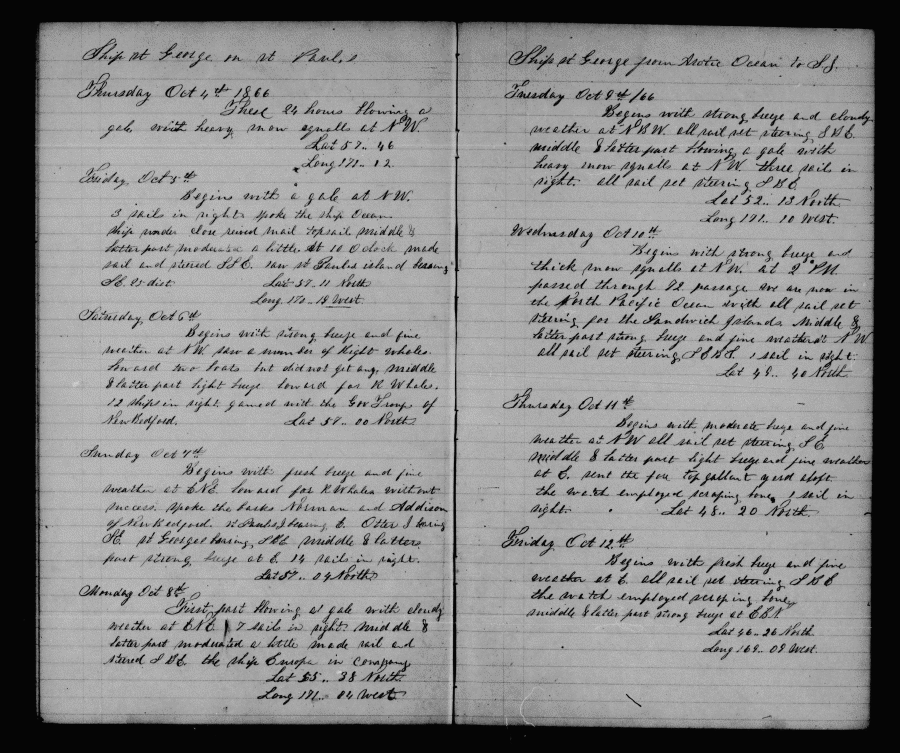 Ship St George on St Paul's
Thursday Oct 4th 1866
These 24 hours blowing a
gale with heavy snow squalls at N W.
Lat 57.. 46
Long 171.. 12
Friday Oct 5th
Begins with a gale at N.W.
3 sails in sight. spoke the ship Ocean
ship under close reived main topsail middle &
latter part moderates a little. At 10 Oclock made
sail and steered S.S.E. saw St Pauls island bearing
S.E. 25 dist Lat 57.. 11 North
Long 170.. 18 West
Saturday Oct 6th
Begins with strong breeze and fine
weather at N.W. saw a number of Right whales.
lowered two boats but did not get any, middle
& latter part light breeze lowered for R Whale.
12 ships in sight. gamed with the Gov Troup of
New Bedford. Lat 57.. 00 North
Sunday Oct 7th
Begins with fresh breeze and fine
weather at ENE. lowered for R Whales without
success. spoke the barks Norman and Addison
of New Bedford. St Pauls I bearing E. Otter I bearing
SE St Georges bearing SSE middle & latter
part strong breeze at E. 14 sails in sight.
Lat 57.. 04 North
Monday Oct 8th
First part blowing a gale with cloudy
weather at ENE. 7 sails in sight. middle &
latter part moderated a little made sail and
steered S B E. the ship Europa in company
Lat 55.. 38 North
Long 171.. 04 West
Ship St George from Arctic Ocean to S.I.
Tuesday Oct 9th /66
Begins with strong breeze and cloudy
weather at N B W. all sail set steering S B E.
middle & latter part blowing a gale with
heavy snow squalls at N W. three sail in
sight. all sail set steering S B E
Lat 52.. 13 North
Long 171.. 10 West.
Wednesday Oct 10th
Begins with strong breeze and
thick snow squalls at N.W. at 2 PM
passed through 72 passage we are now in
the North Pacific Ocean with all sail set
steering for the Sandwich Islands Middle &
latter part strong breeze and fine weather at N W
all sail set steering S E B S. 1 sail in sight.
Lat 49.. 40 North
Thursday Oct 11th
Begins with moderate breeze and fine
weather at N W all sail set steering S E
middle & latter part light breeze and fine weather
at E. sent the fore top gallant yard aloft
the watch employed scraping bone, 1 sail in
sight. Lat 48.. 20 North
Friday Oct 12th
Begins with fresh breeze and fine
weather at E. all sail set steering S B E
the watch employed scraping bone
middle & latter part strong breeze at E B N
Lat 46.. 26 North
Long 169.. 09 West.